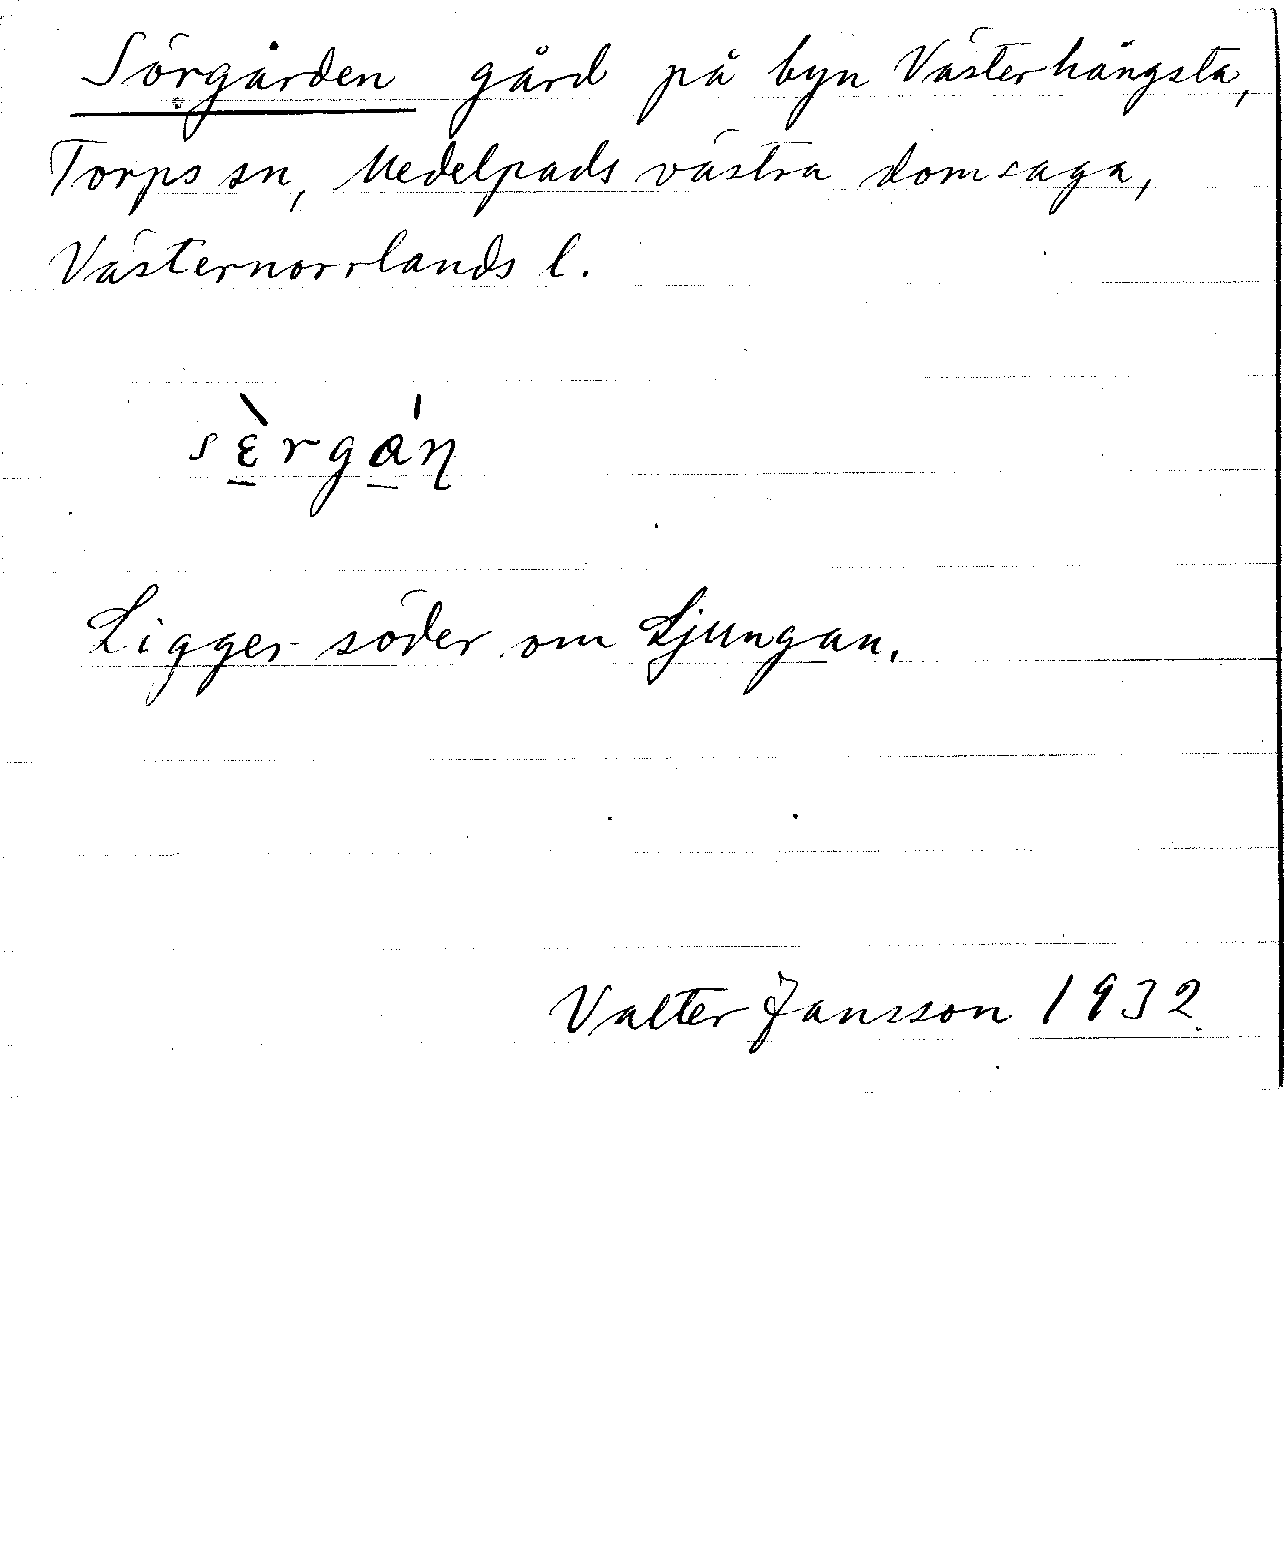 Sörgården gård på byn Västerhängsta,
Torps sn, Medelpads västra domsaga,
Västernorrlands l.
sɛ̀rgán
Ligger söder om Ljungan.
Valter Jansson 1932.